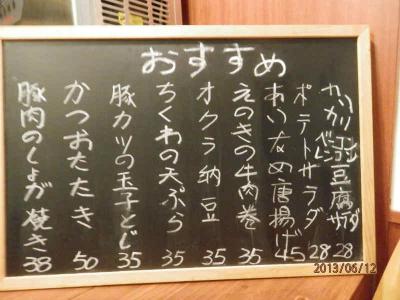 おすすめ
カリカリベーコン豆腐サラダ 28
ポテトサラダ 28
あいなめ唐揚げ 45
えのきの牛肉巻 35
オクラ納豆 35
ちくわの天ぷら 35
豚カツの玉子とじ 35
かつおたたき 50
豚肉のしょが焼き 38
2013/06/12